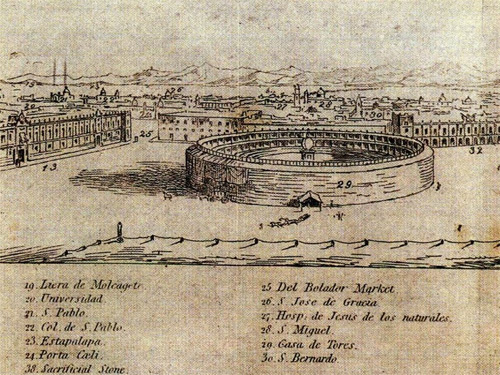 26
30
25
32
13
29
19. Luera de Molcagete
20. Universidad.
21. S. Pablo.
22. Col. de S. Pablo.
23. Estapalapa.
24. Porta Cœli.
38. Sacrificial Stone.
25. Del Bolador Market
26. S. Jose de Gracia
27. Hosp. de Jesus de los naturales.
28. S. Miguel.
29. Casa de Tores.
30. S. Bernardo.